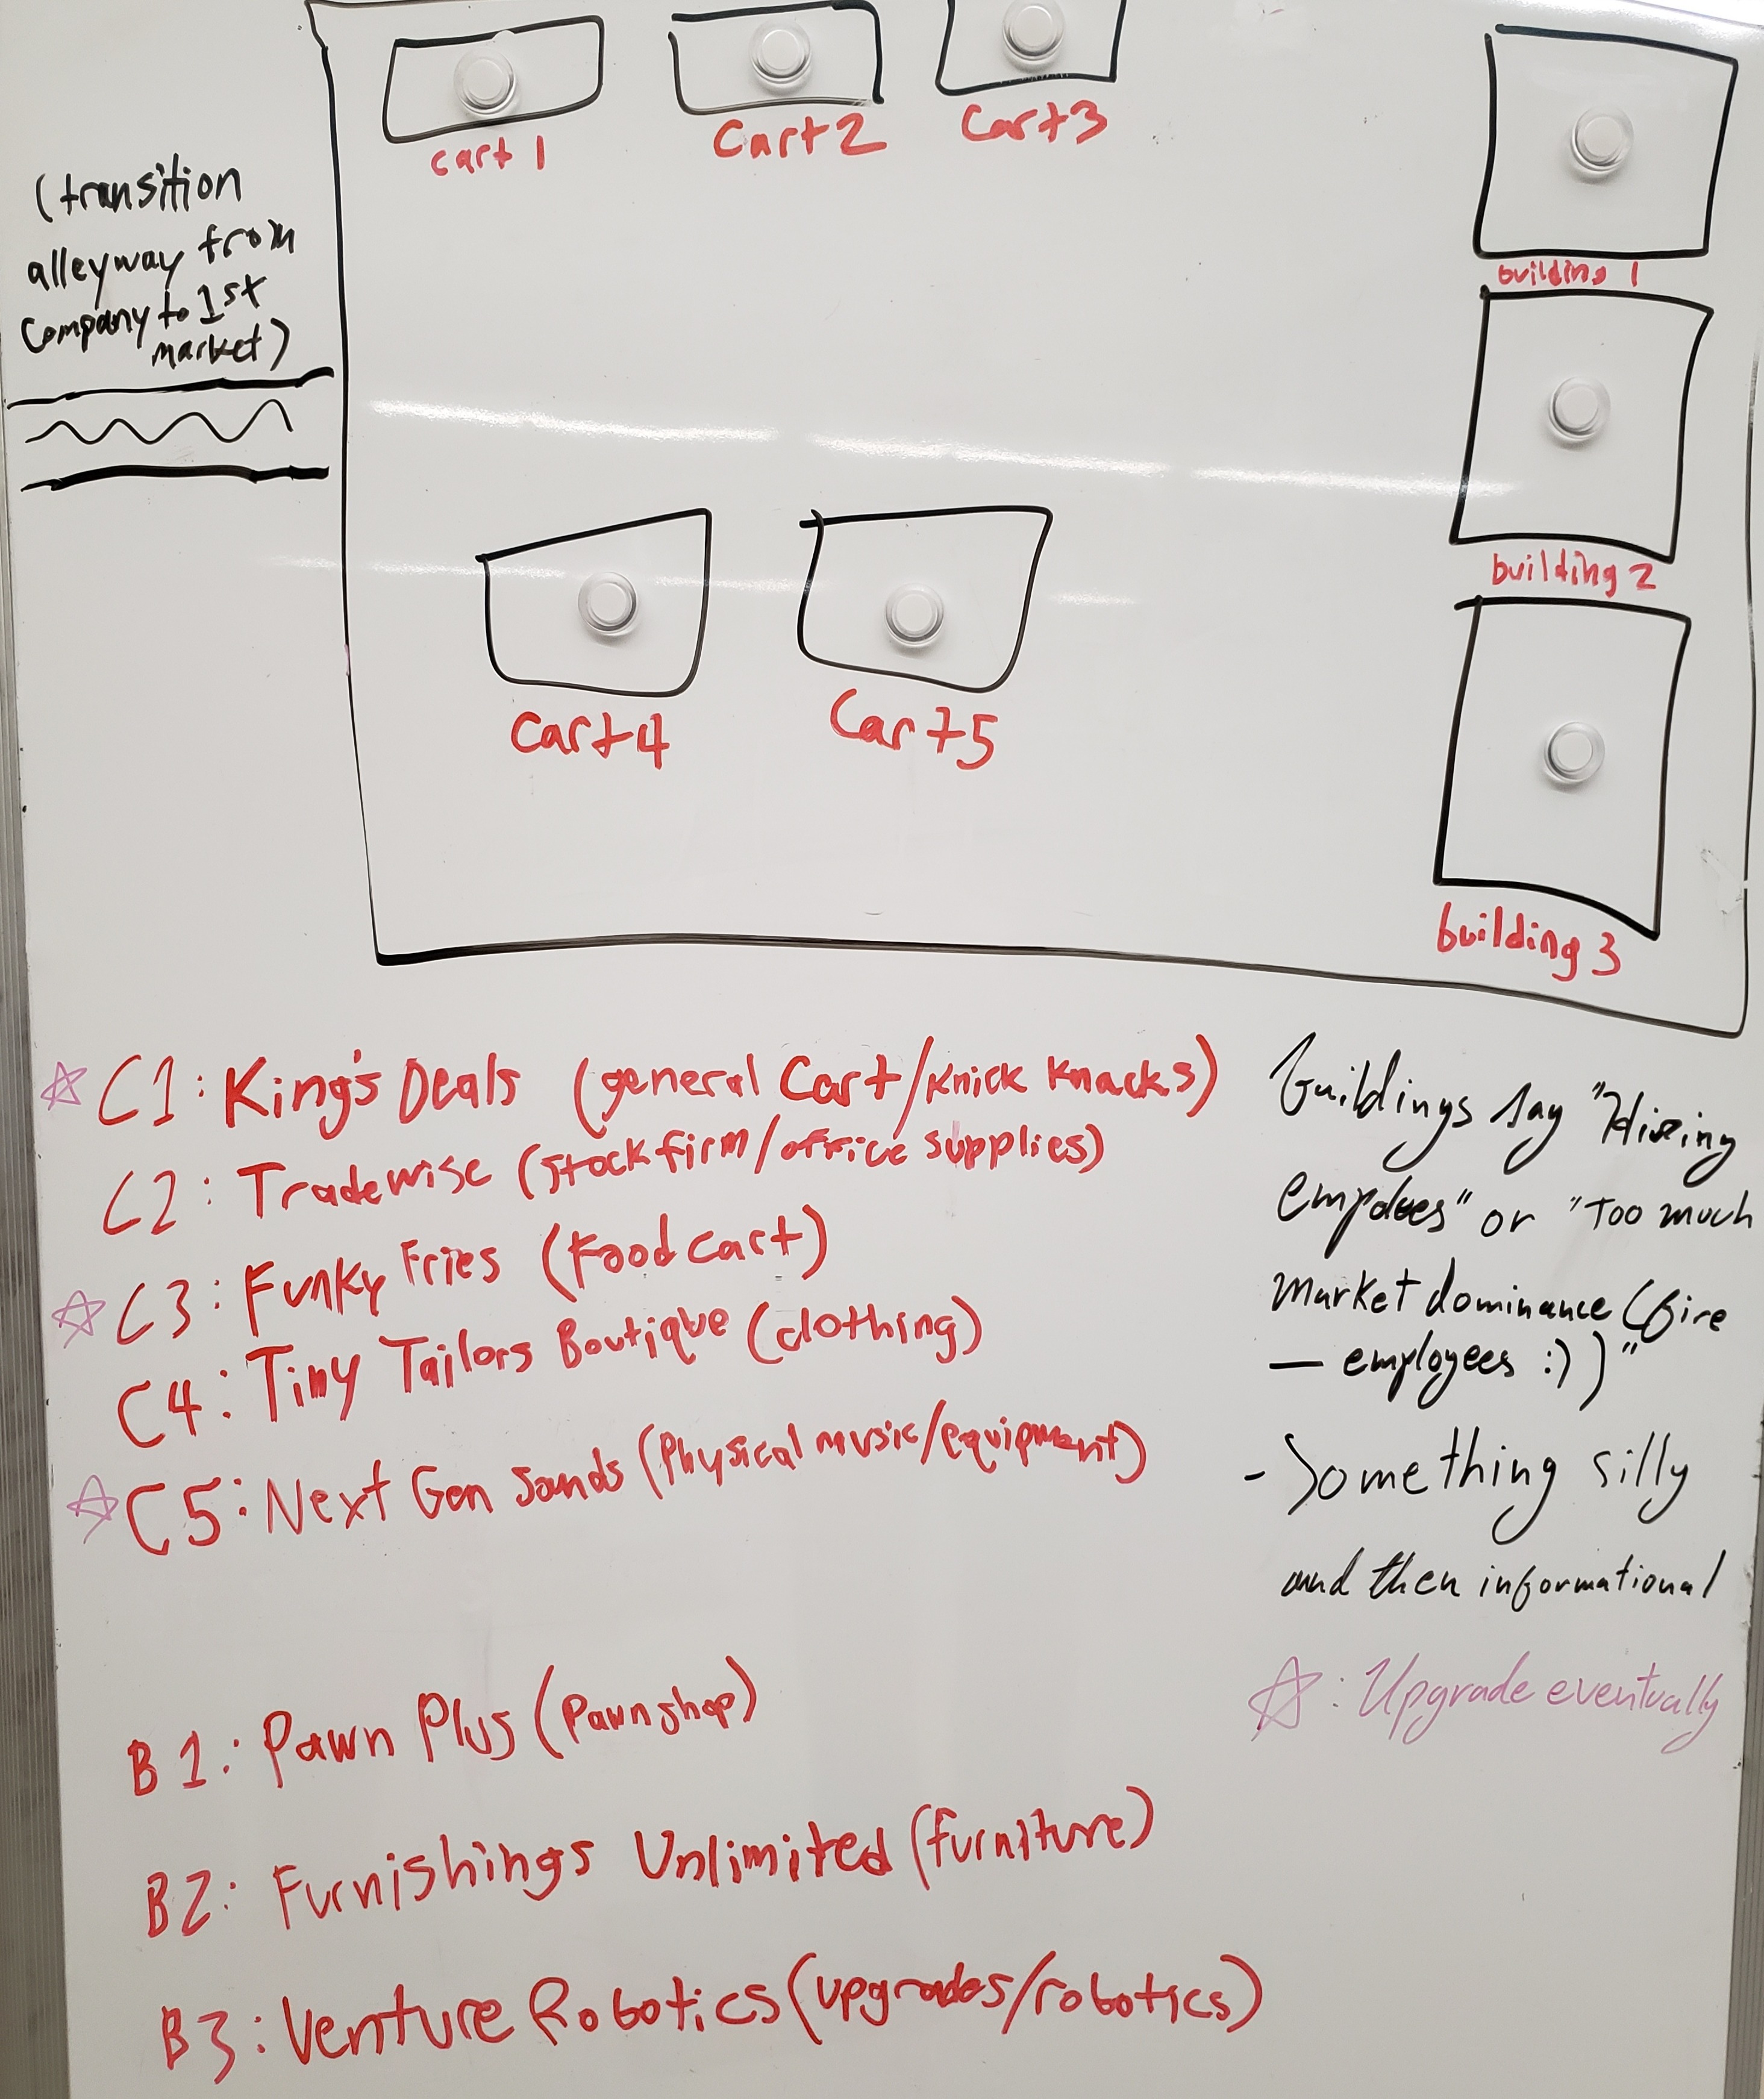 cart 1
Cart 2
Cart 3
(transition
alleyway from
Company to 1st
market)
building 1
building 2
Cart 4
Cart 5
building 3
☆ C1: King's Deals (general Cart/Knick Knacks)
C2: Tradewise (stock firm/office supplies)
☆ C3: Funky Fries (Food cart)
C4: Tiny Tailors Boutique (clothing)
☆ C5: Next Gen Sounds (Physical music/equipment)
buildings say "Hiring
empoloees" or "Too much
market dominance (fire
— employees :) )"
- Something silly
and then informational
☆: Upgrade eventually
B1: Pawn Plus (Pawnshop)
B2: Furnishings Unlimited (furniture)
B3: Venture Robotics (upgrades/robotics)